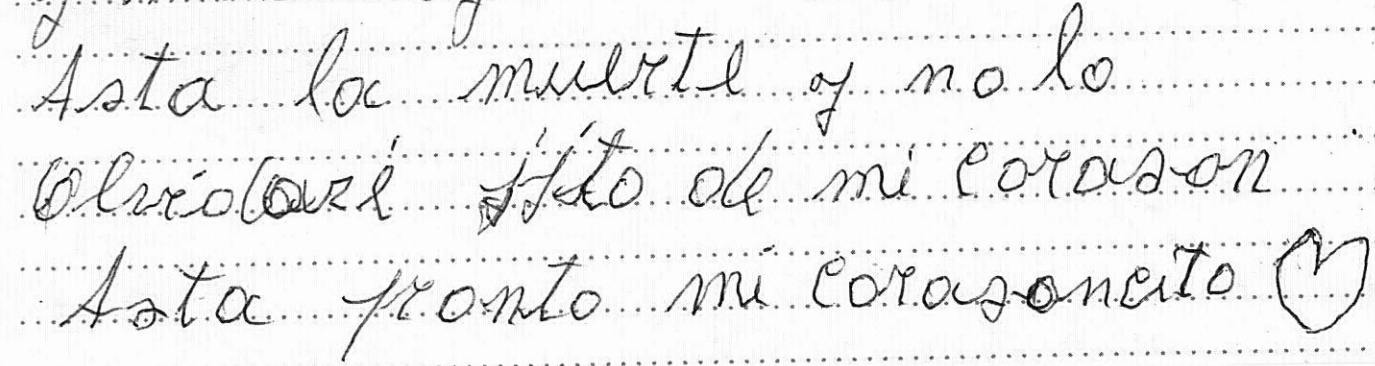 Asta la muerte y no lo
Olvidaré jijito de mi corason
Asta pronto mi corasoncito